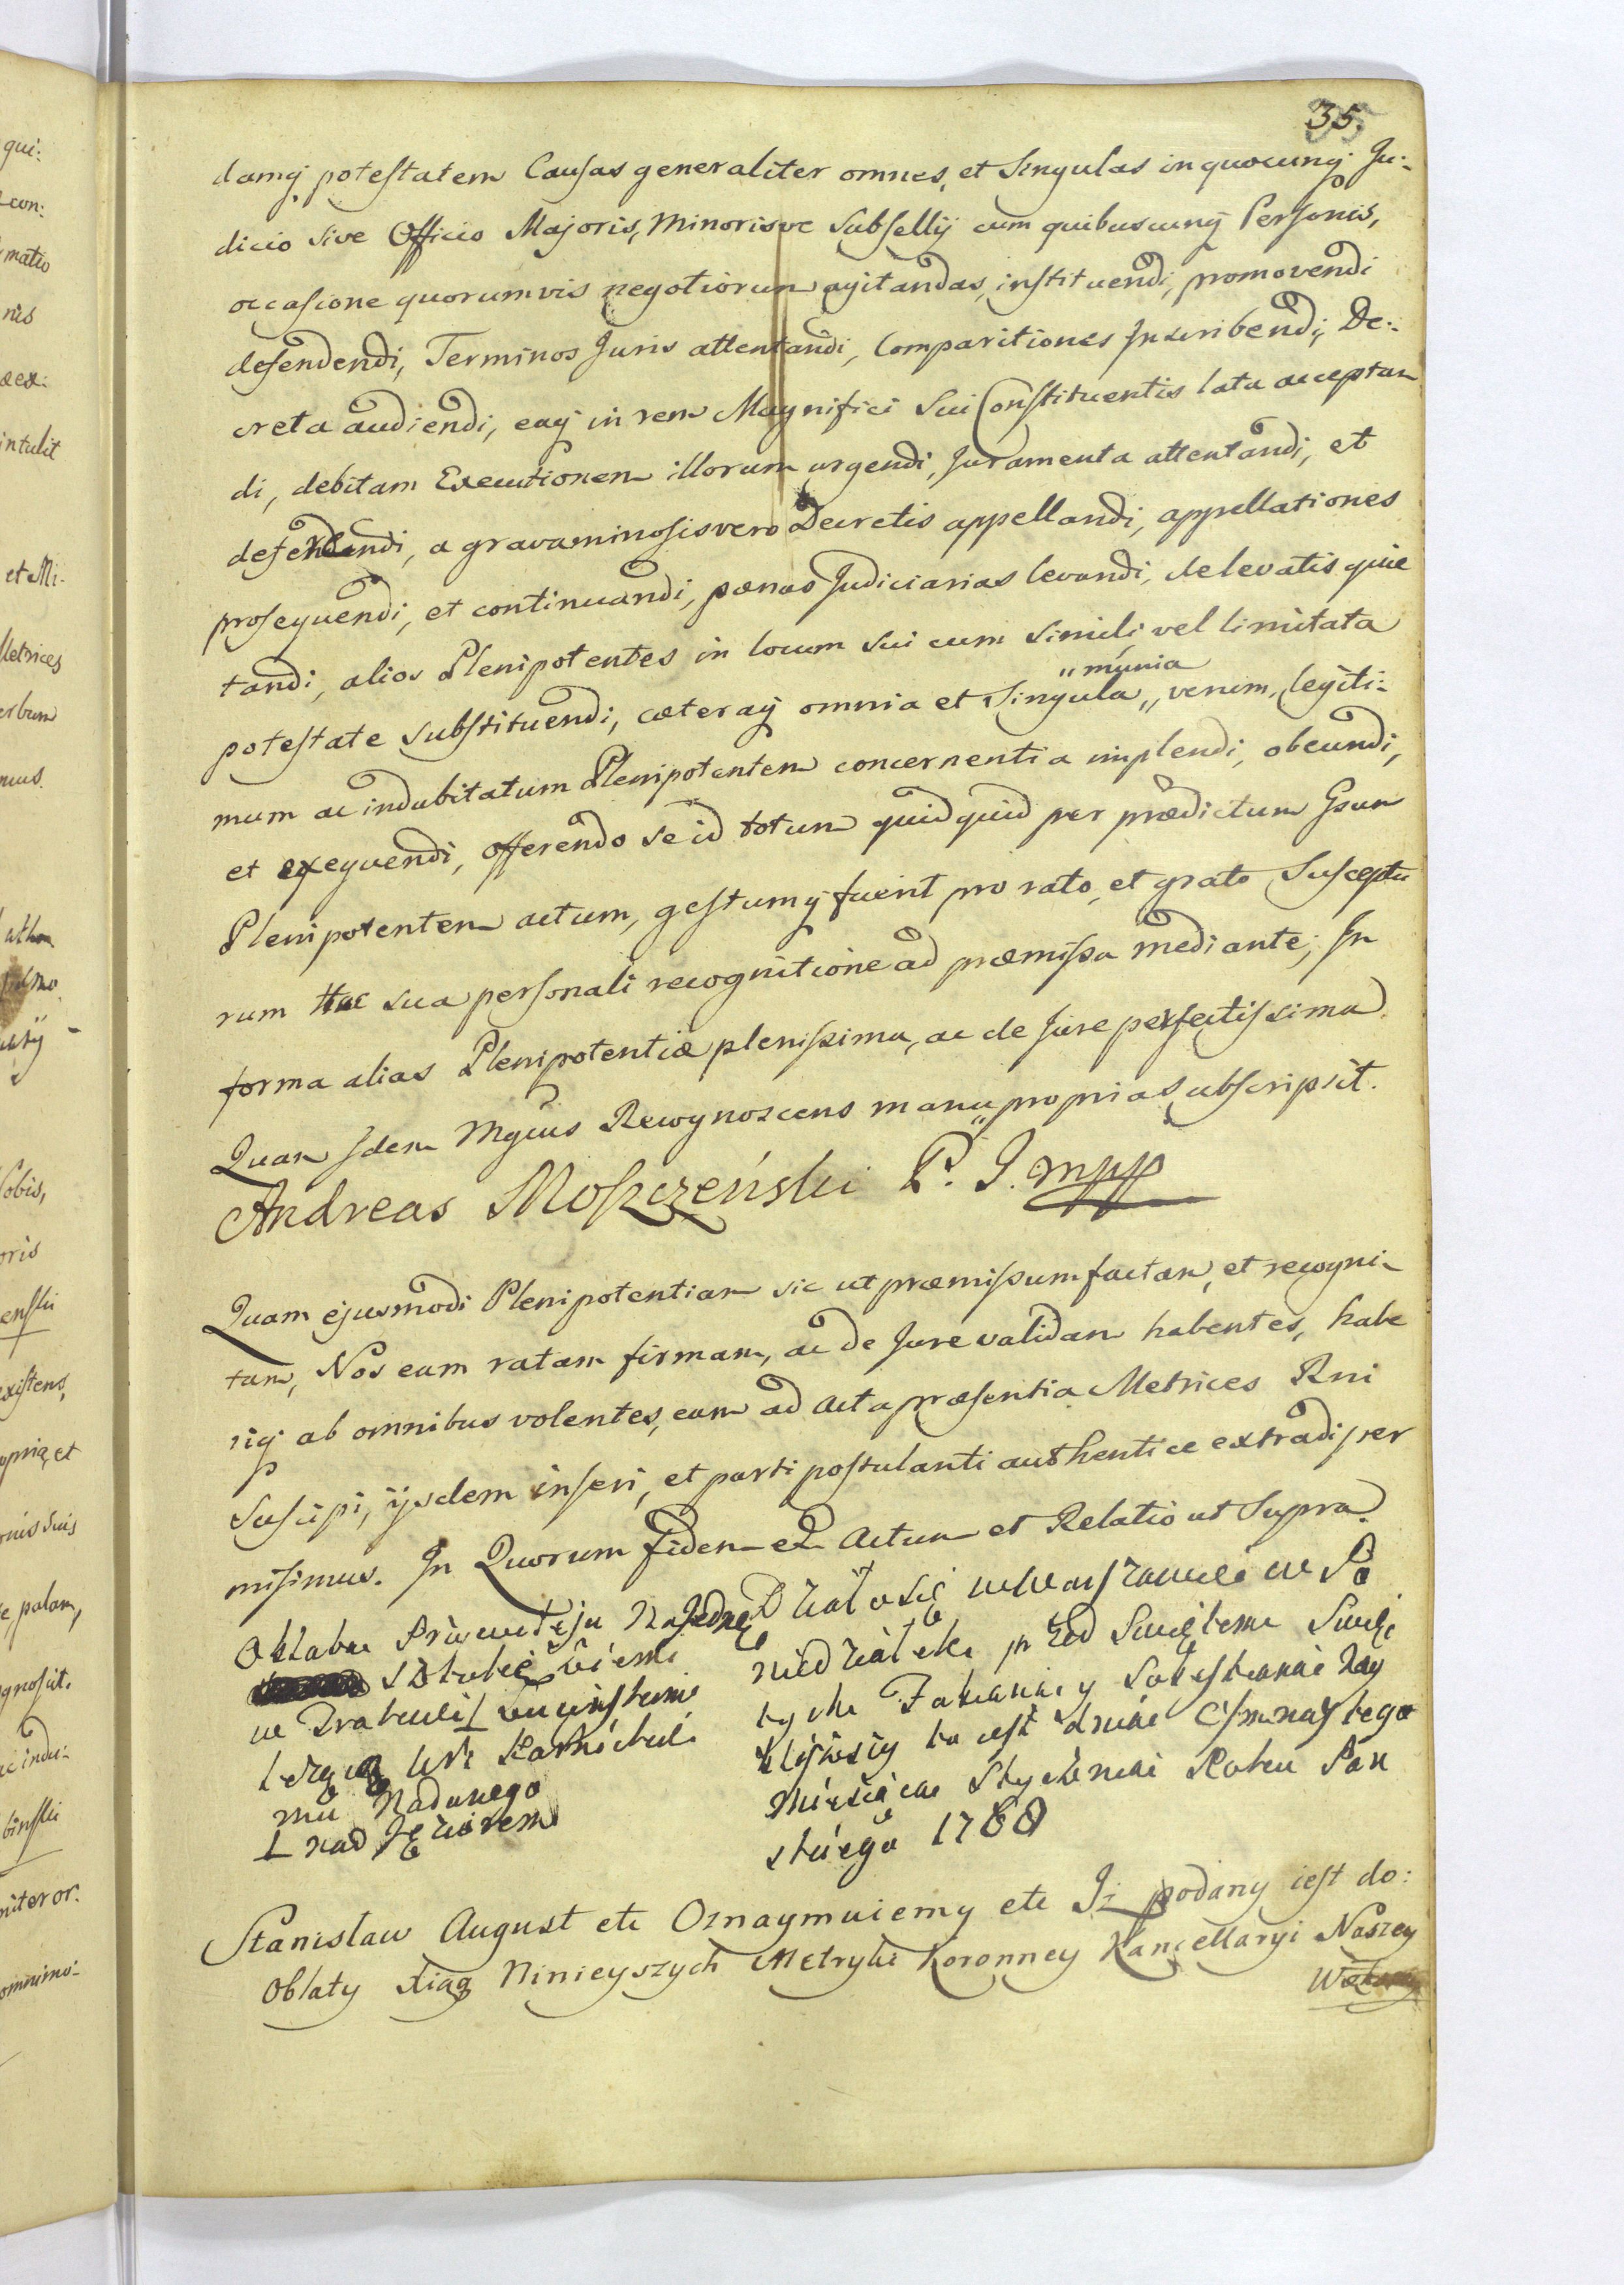 35.
damq; potestatem Causas generaliter omnes, et Singulas in quocunq; Ju:
dicio sive Officio Majoris, Minorisve Subsellij cum quibuscunq; Personis,
occasione quorumvis negotiorum agitandas, instituendi, promovendi
defendendi, Terminos Juris attentandi, Comparitiones Inscribendi, De:
creta audiendi, eaq; in rem Magnifici Sui Constituentis lata acceptan
di, debitam Executionem illorum urgendi, Juramenta attentandi, et
defendendi, a gravaminosis vero Decretis appellandi, appellationes
prosequendi, et continuandi, pænas Judiciarias levandi, de levatis quie
tandi, alios Plenipotentes in locum sui cum simili, vel limitata
potestate Substituendi, cæteraq; omnia et Singula „ verum, legiti:
„ munia
mum ac indubitatum Plenipotentem concernentia implendi, obeundi,
et exequendi, offerendo se id totum quidquid per prædictum Gsum
Plenipotentem actum, gestumq; fuerit pro rato, et grato Susceptu
rum Hac sua personali recognitione ad præmissa mediante; In
forma alias Plenipotentiæ plenissima, ac de Jure perfectissima.
Quam Idem Mgcus Recognoscens manu„propria Subscripsit.
Andreas Moszczeński P. J. mpp
Quam ejusmodi Plenipotentiam sic ut præmissum factam, et recogni-
tam, Nos eam ratam firmam, ac de Jure validam habentes, habe
riq; ab omnibus volentes, eam ad Acta præsentia Metrices Rni
Suscipi, ijsdem inseri, et parti postulanti authentice extradi per
misimus. In Quorum fidem et Actum et Relatio ut Supra.
Oblata Priwileju Na Jednę
ziemi
w
Nadanego
nad Jeziorem
Działo się w Warszawie w Po
niedziałek przed Swiętem Swię
tych Fabiana y Sebestiana Nay
bliższy to jest dnia Osmnastego
Miesiąca Stycznia Roku Pań
skiego 1780
Stanisław August etc Oznaymuiemy etc Iż podany iest do:
Oblaty Xiąg Ninieyszych Metryki Koronney Kancellaryi Naszey